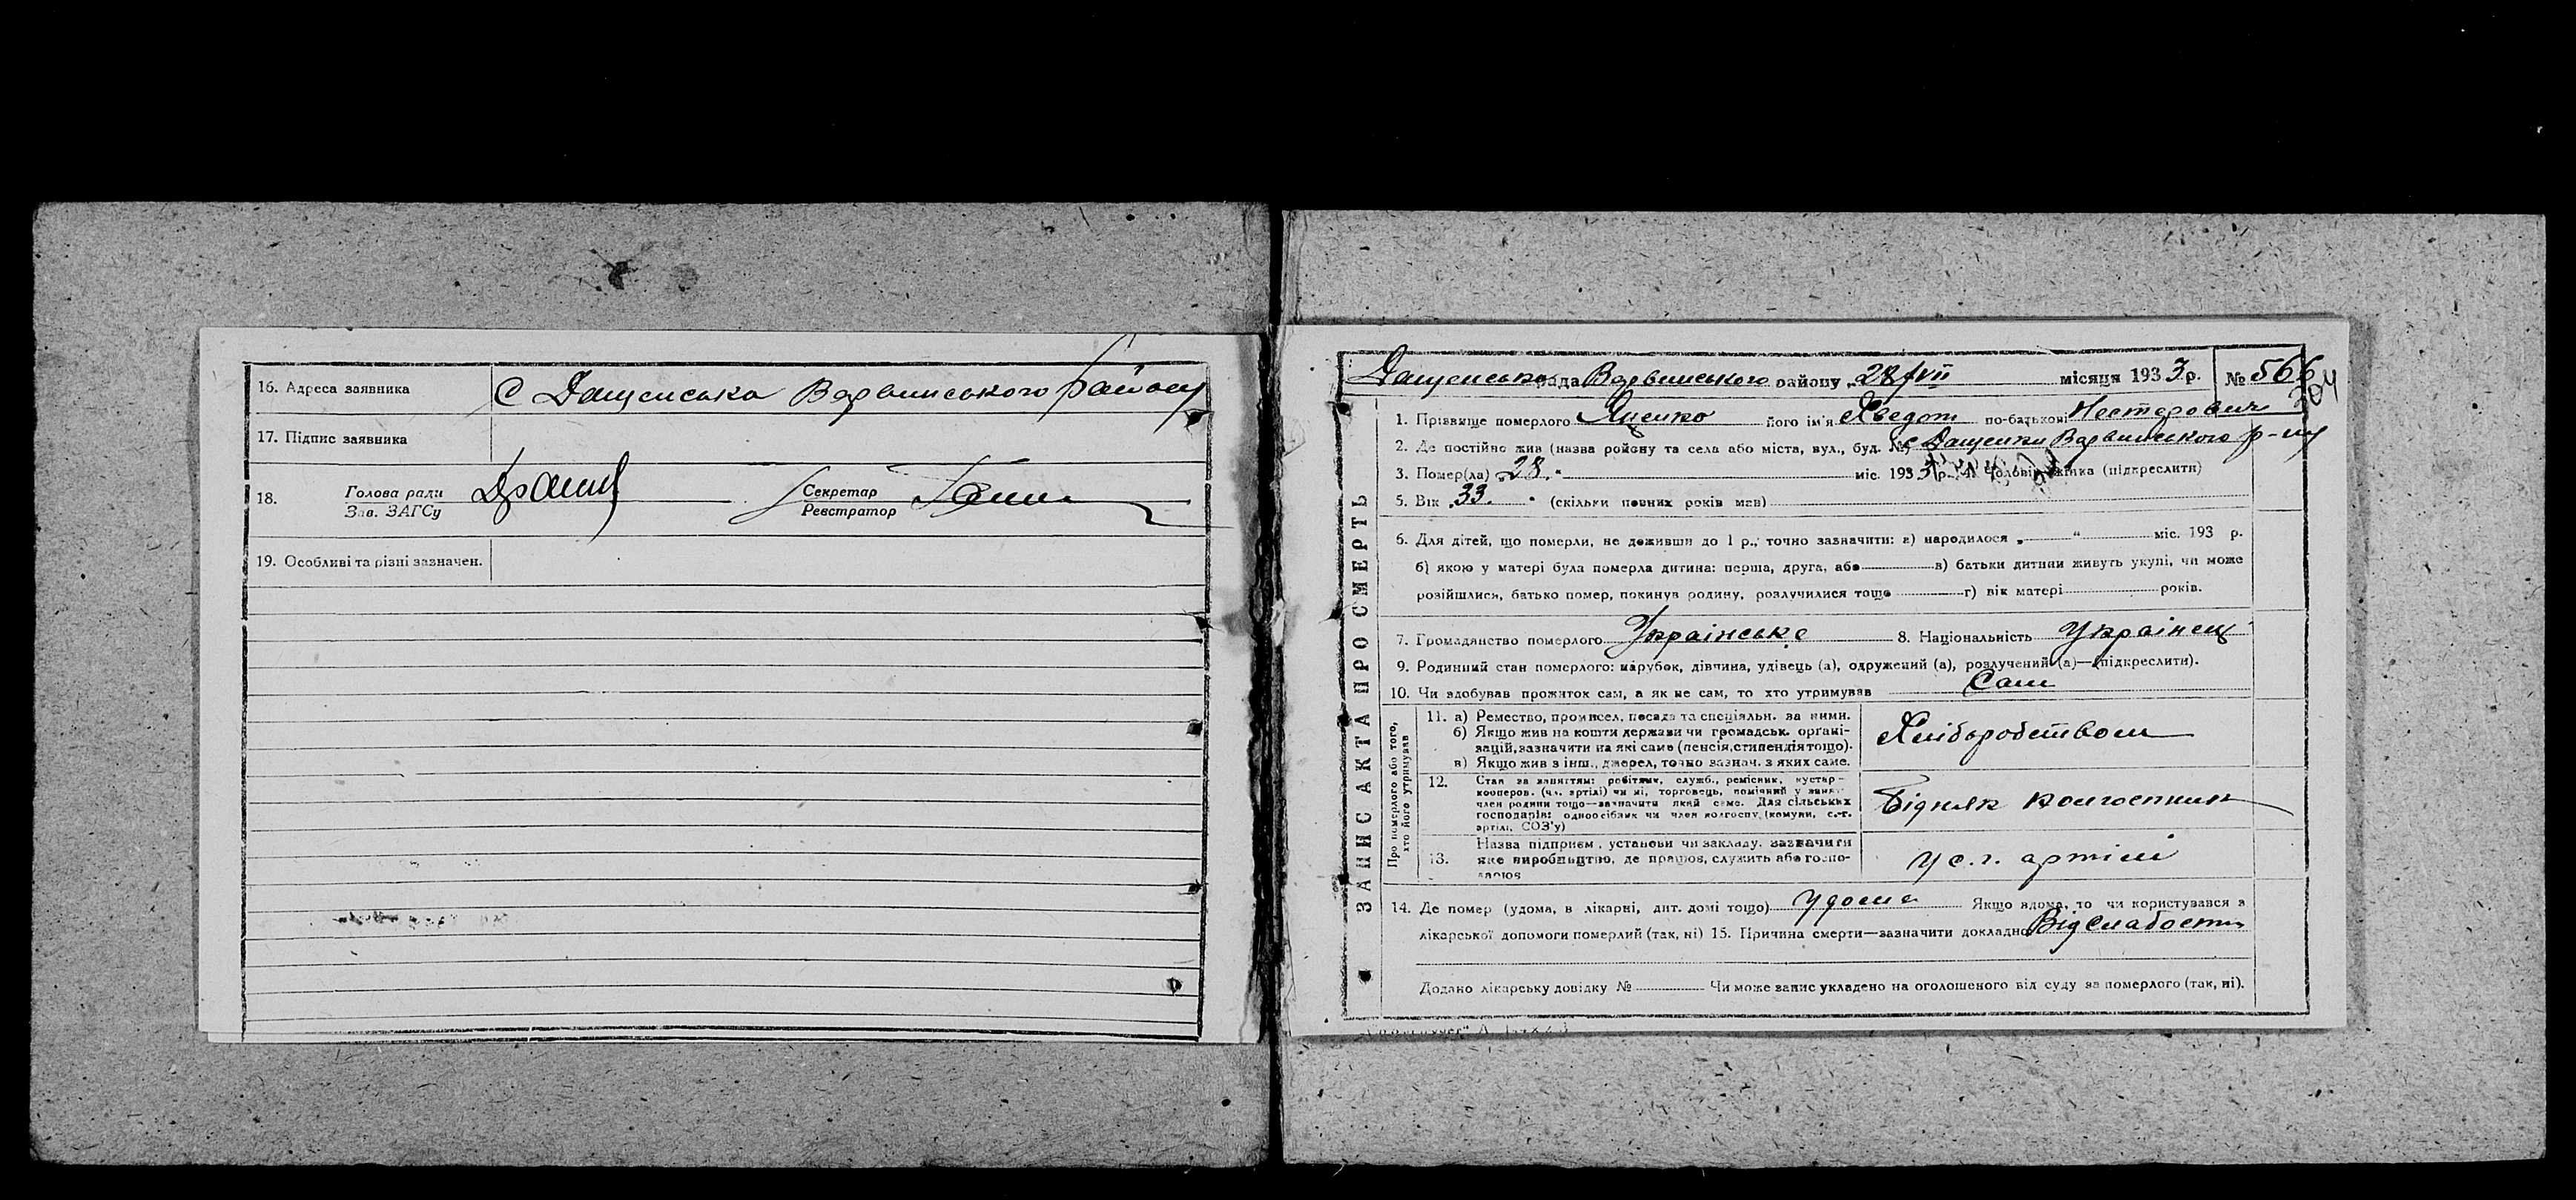 16. Адреса заявника С Дащенська Варвинського району
17. Підпис заявника
18. Голова ради Секретар
Зав. ЗАГСу Реєстратор
19. Особливі та різні зазначен.
ЗАПИС АКТА ПРО СМЕРТЬ
Дащенська рада Варвинського району „28/VII місяця 1933 р. № 566
304
1. Прізвище померлого Яценко його ім'я Хведот по-батькові Нестерович
2. Де постійно жив (назва району та села або міста, вул., буд. №) с Дащенки Варвинського р-ну
3. Помер(ла) „28." міс. 1933 р. 4. Чоловік, жінка (підкреслити)
5. Вік „33." (скільки повних років мав)
6. Для дітей, що померли, не доживши до 1 р., точно зазначити: а) народилося „ " міс. 193 р.
б) якою у матері була померла дитина: перша, друга, або в) батьки дитини живуть укупі, чи може
розійшлися, батько помер, покинув родину, розлучилися тощо г) вік матері років.
7. Громадянство померлого Українське 8. Національність Українец
9. Родинний стан померлого: парубок, дівчина, удівець (а), одружений (а), розлучений (а)—(підкреслити).
10. Чи здобував прожиток сам, а як не сам, то хто утримував Сам
Про померлого або того, хто його утримував
11. а) Ремество, промисел, посада та спеціяльн. за ними.
б) Якщо жив на кошти держави чи громадськ. органі-
зацій, зазначити на які саме (пенсія, стипендія тощо).
в) Якщо жив з інш., джерел, точно зазнач. з яких саме.
Хліборобством
12. Стан за заняттям: робітник, служб., ремісник, кустар-
кооперов. (чл. артілі) чи ні, торговець, помічний у занят.
член родини тощо—зазначити який саме. Для сільських
господарів: одноосібник чи член колгоспу (комуни, с.-г.
артілі, СОЗ'у)
Бідняк колгоспник
13. Назва підприєм., установи чи закладу, зазначити
яке виробництво, де працював, служить або госпо-
у с. г. артілі
14. Де помер (удома, в лікарні, дит. домі тощо) удома Якщо вдома, то чи користувався з
лікарської допомоги померлий (так, ні) 15. Причина смерти—зазначити докладно Від слабости
Додано лікарську довідку № Чи може запис укладено на оголошеного від суду за померлого (так, ні).